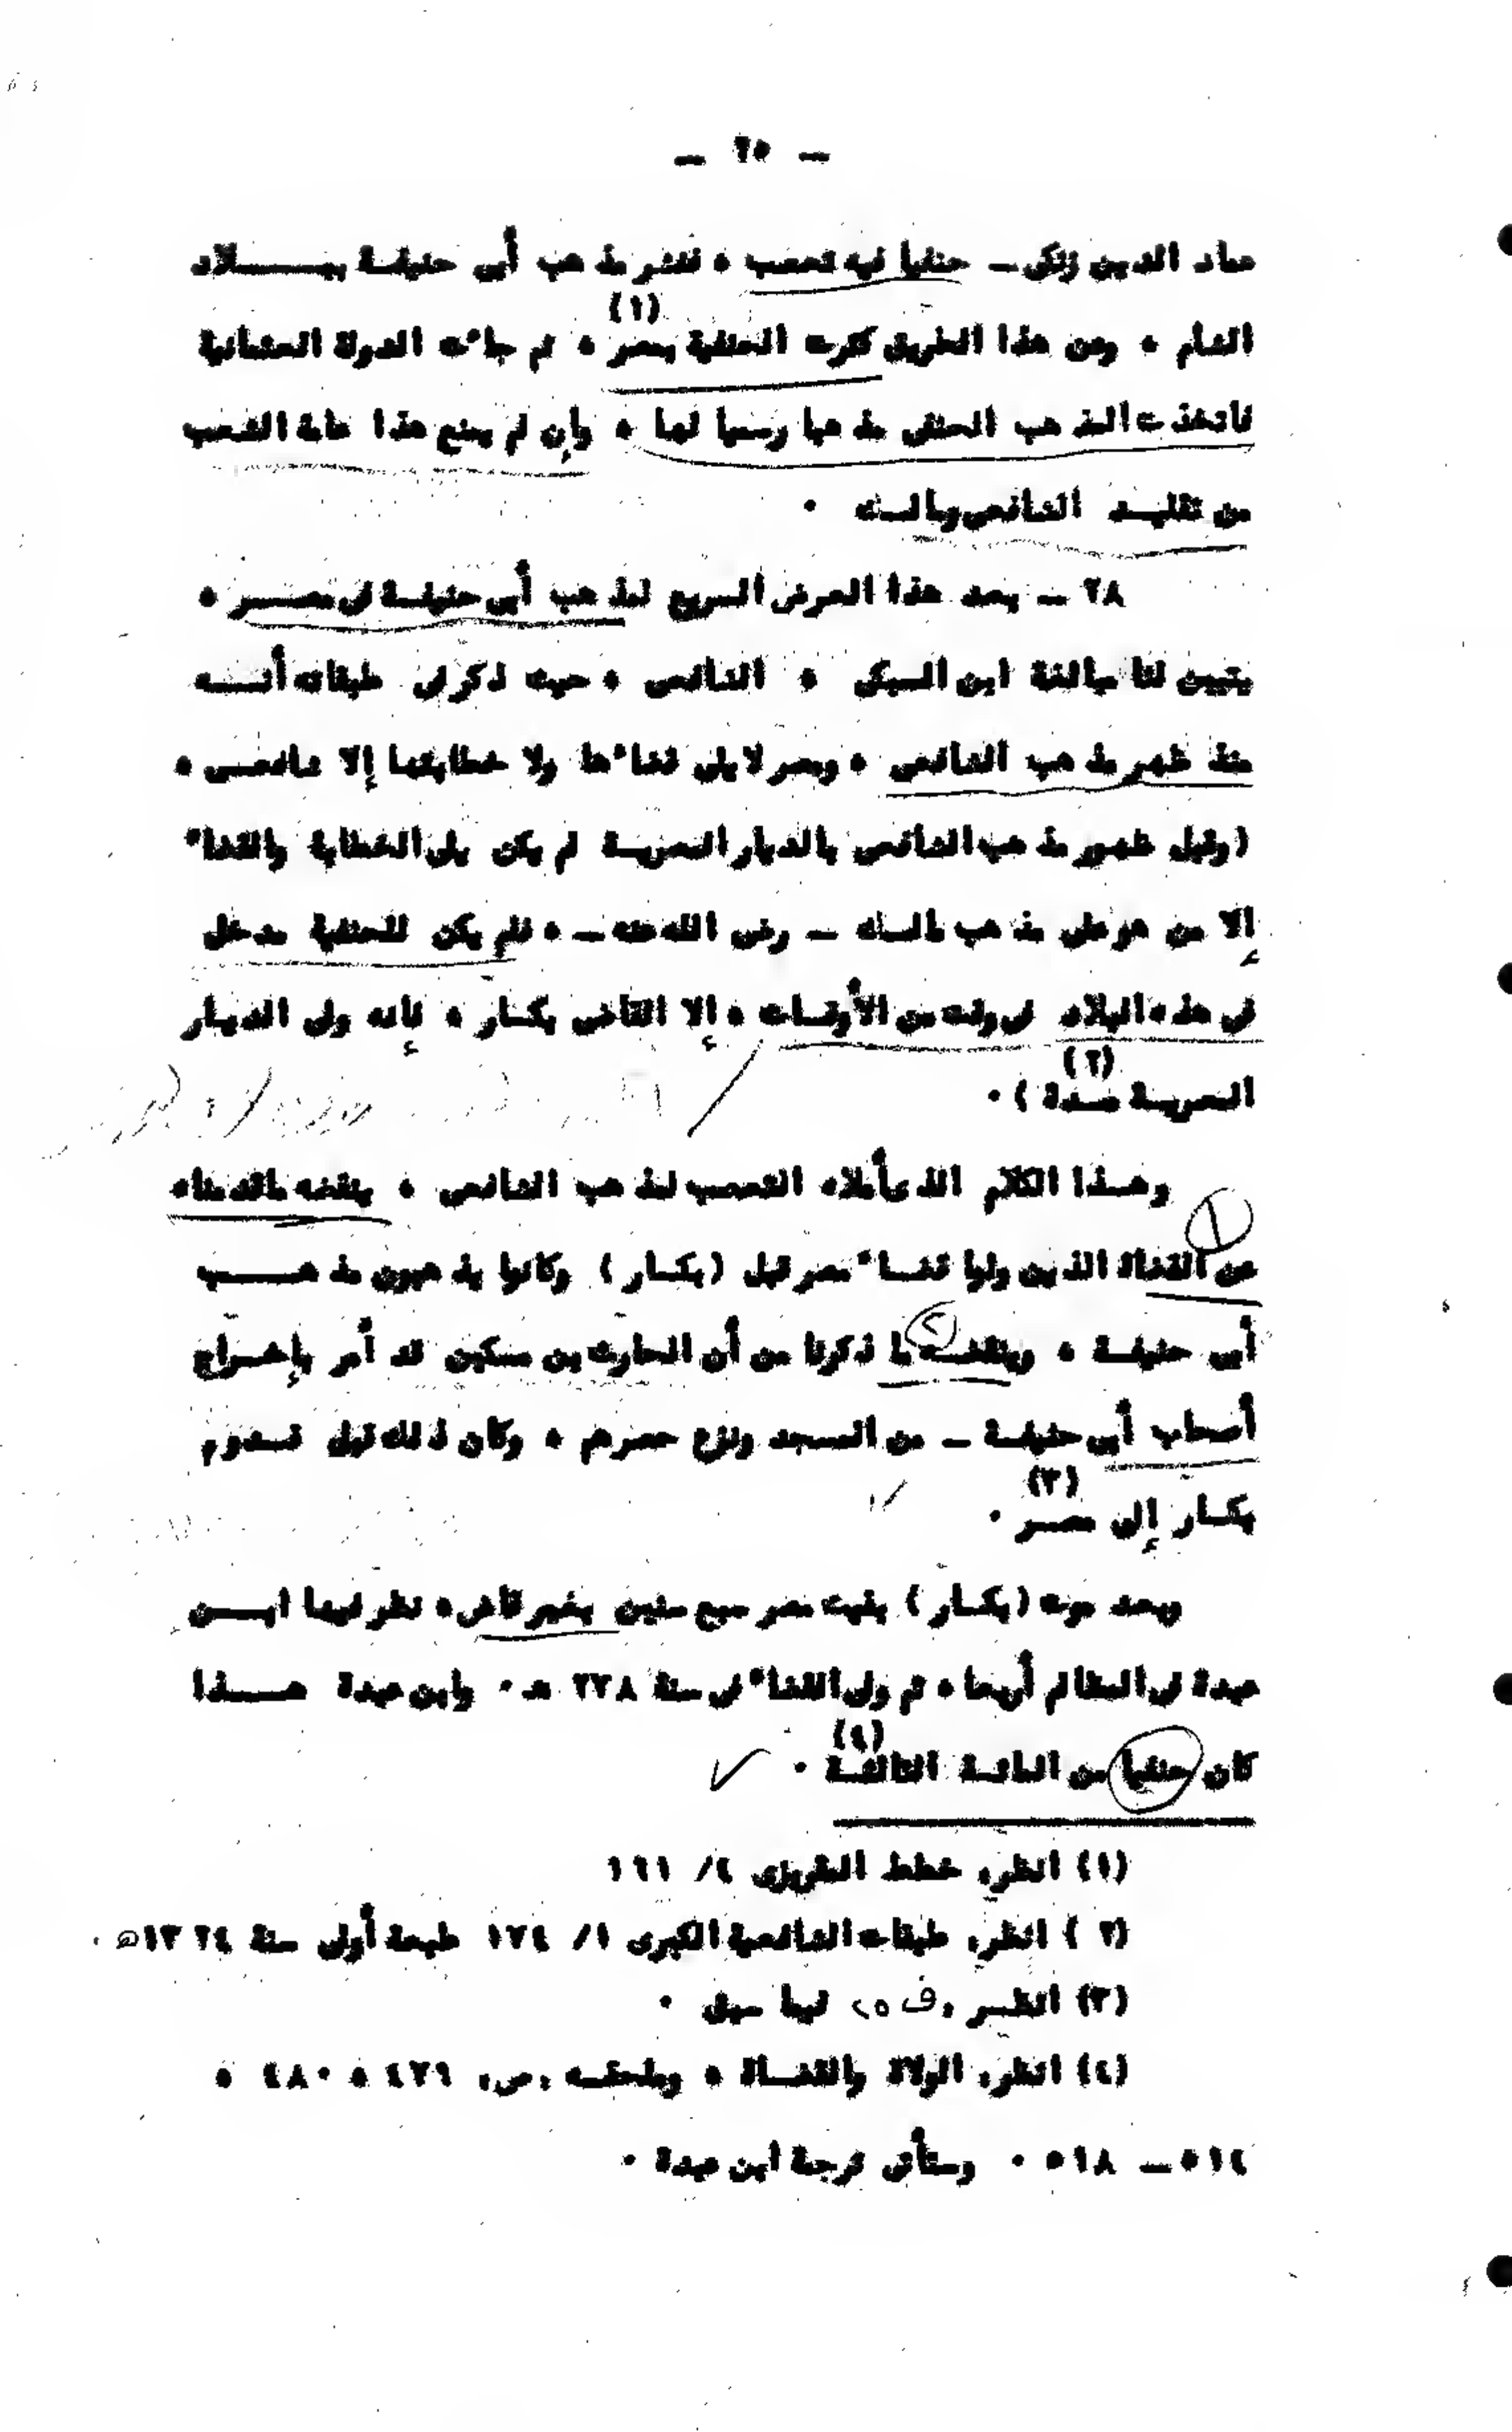 — ٢٥ —
عماد الدين زنكى — حنفيا فيه تعصب ، فنشر مذهب أبى حنيفة ببــــلاد
الشام ، ومن هذا الطريق كثرت الحنفية بمصر (١) ، ثم جاءت الدولة العثمانية
فاتخذت المذهب الحنفى مذهبا رسميا لها ، وإن لم يمنع هذا عامة الشعب
من تقليد الشافعى ومالك .
٢٨ — بعد هذا العرض السريع لمذهب أبى حنيفة فى مصر ،
يتبين لنا مبالغة ابن السبكى ، الشافعى ، حيث ذكر فى طبقاته أنــه
منذ ظهر مذهب الشافعى ، ومصر لا يلى قضاءها ولا خطابتها إلا شافعى ،
(وقبل ظهور مذهب الشافعى بالديار المصرية لم يكن يلى الخطابة والقضاء
إلا من هو على مذهب مالك — رضى الله عنه — ، فلم يكن للحنفية مدخل
فى هذه البلاد فى وقت من الأوقات ، إلا القاضى بكار ، فإنه ولى الديار
المصرية مدة ) (٢) .
وهذا الكلام الذى أملاه التعصب لمذهب الشافعى ، ينقضه ماقدمناه
١
عن القضاة الذين ولوا قضاء مصر قبل (بكار) وكانوا يذهبون مذهــــب
أبى حنيفة ، وينقضه ٢ ما ذكرنا من أن الحارث بن مسكين قد أمر بإخراج
أصحاب أبى حنيفة — من المسجد ونزع حصرهم ، وكان ذلك قبل قدوم
بكار إلى مصر (٣) .
وبعد موت (بكار) بقيت مصر سبع سنين بغير قاض ، نظر فيها ابــن
عبدة فى المظالم أربعا ، ثم ولى القضاء فى سنة ٢٧٨ هـ . وابن عبدة هـــذا
كان حنفيا من المائة الثالثة (٤) .
(١) انظر، خطط المقريزى ٤/ ١٦١
(٢) انظر، طبقات الشافعية الكبرى ١/ ١٧٤ طبعة أولى سنة ١٣٢٤هـ .
(٣) انظر ، ف ٢٥ فيما سبق .
(٤) انظر، الولاة والقضاة ، وملحقه ،ص، ٤٧٩ ، ٤٨٠ ،
٥١٤ — ٥١٨ . وستأتى ترجمة ابن عبدة .